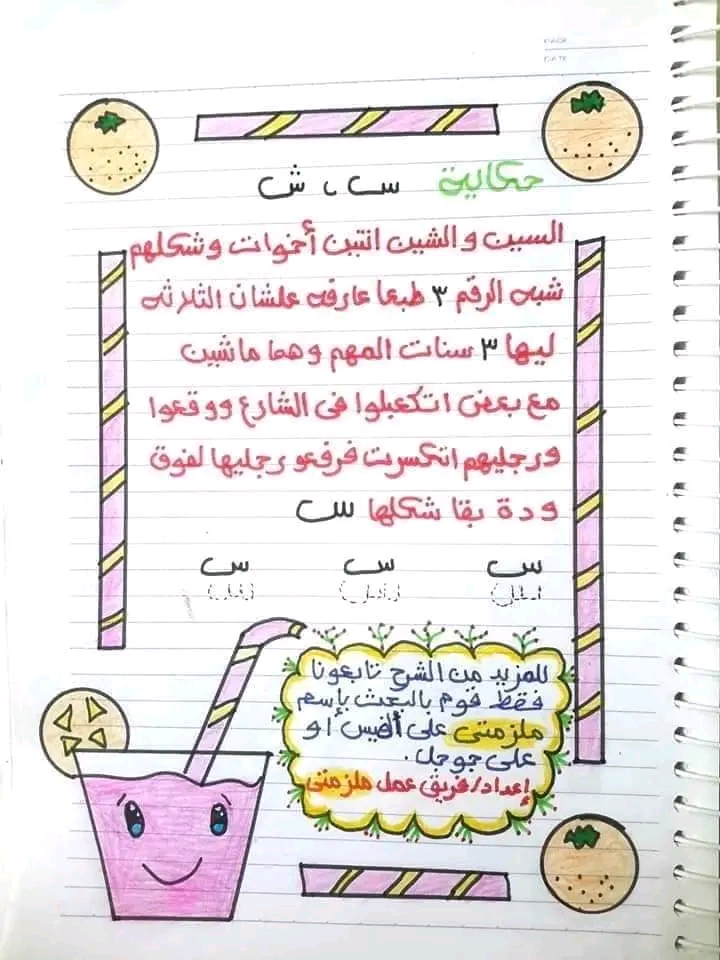 PAGE
DATE
حكاية س ، ش
السين و الشين اتنين أخوات و شكلهم
شبه الرقم ٣ طبعا عارفه علشان الثلاثه
ليها ٣ سنات المهم وهما ماشين
مع بعض اتكعبلوا فى الشارع ووقعوا
ورجليهم اتكسرت فرفعو رجليها لفوق
ودة بقا شكلها س
س س س
للمزيد من الشرح تابعونا
فقط قوم بالبحث بإسم
ملزمتى على الفيس او
على جوجل .
إعداد/فريق عمل ملزمتى